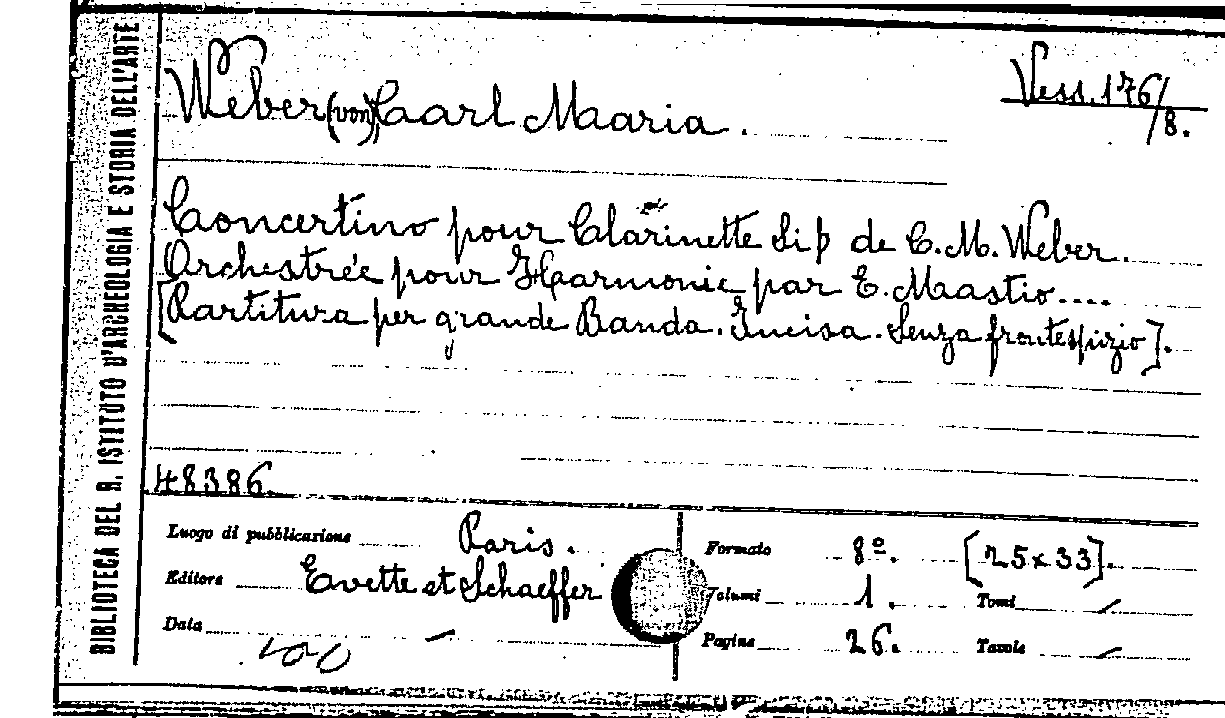 BIBLIOTECA DEL R. ISTITUTO D'ARCHEOLOGIA E STORIA DELL'ARTE
Weber (von) Carl Maria.
Vess. 176/8.
Concertino pour Clarinette Si♭ de C. M. Weber.
Orchestrée pour Harmonie par E. Mastio....
[Partitura per grande Banda. Incisa. Senza frontespizio].
48386.
Luogo di pubblicazione Paris.
Editore Evette et Schaeffer
Data –
Formato 8º. [25x33].
Volumi 1. Tomi –
Pagine 26. Tavole –